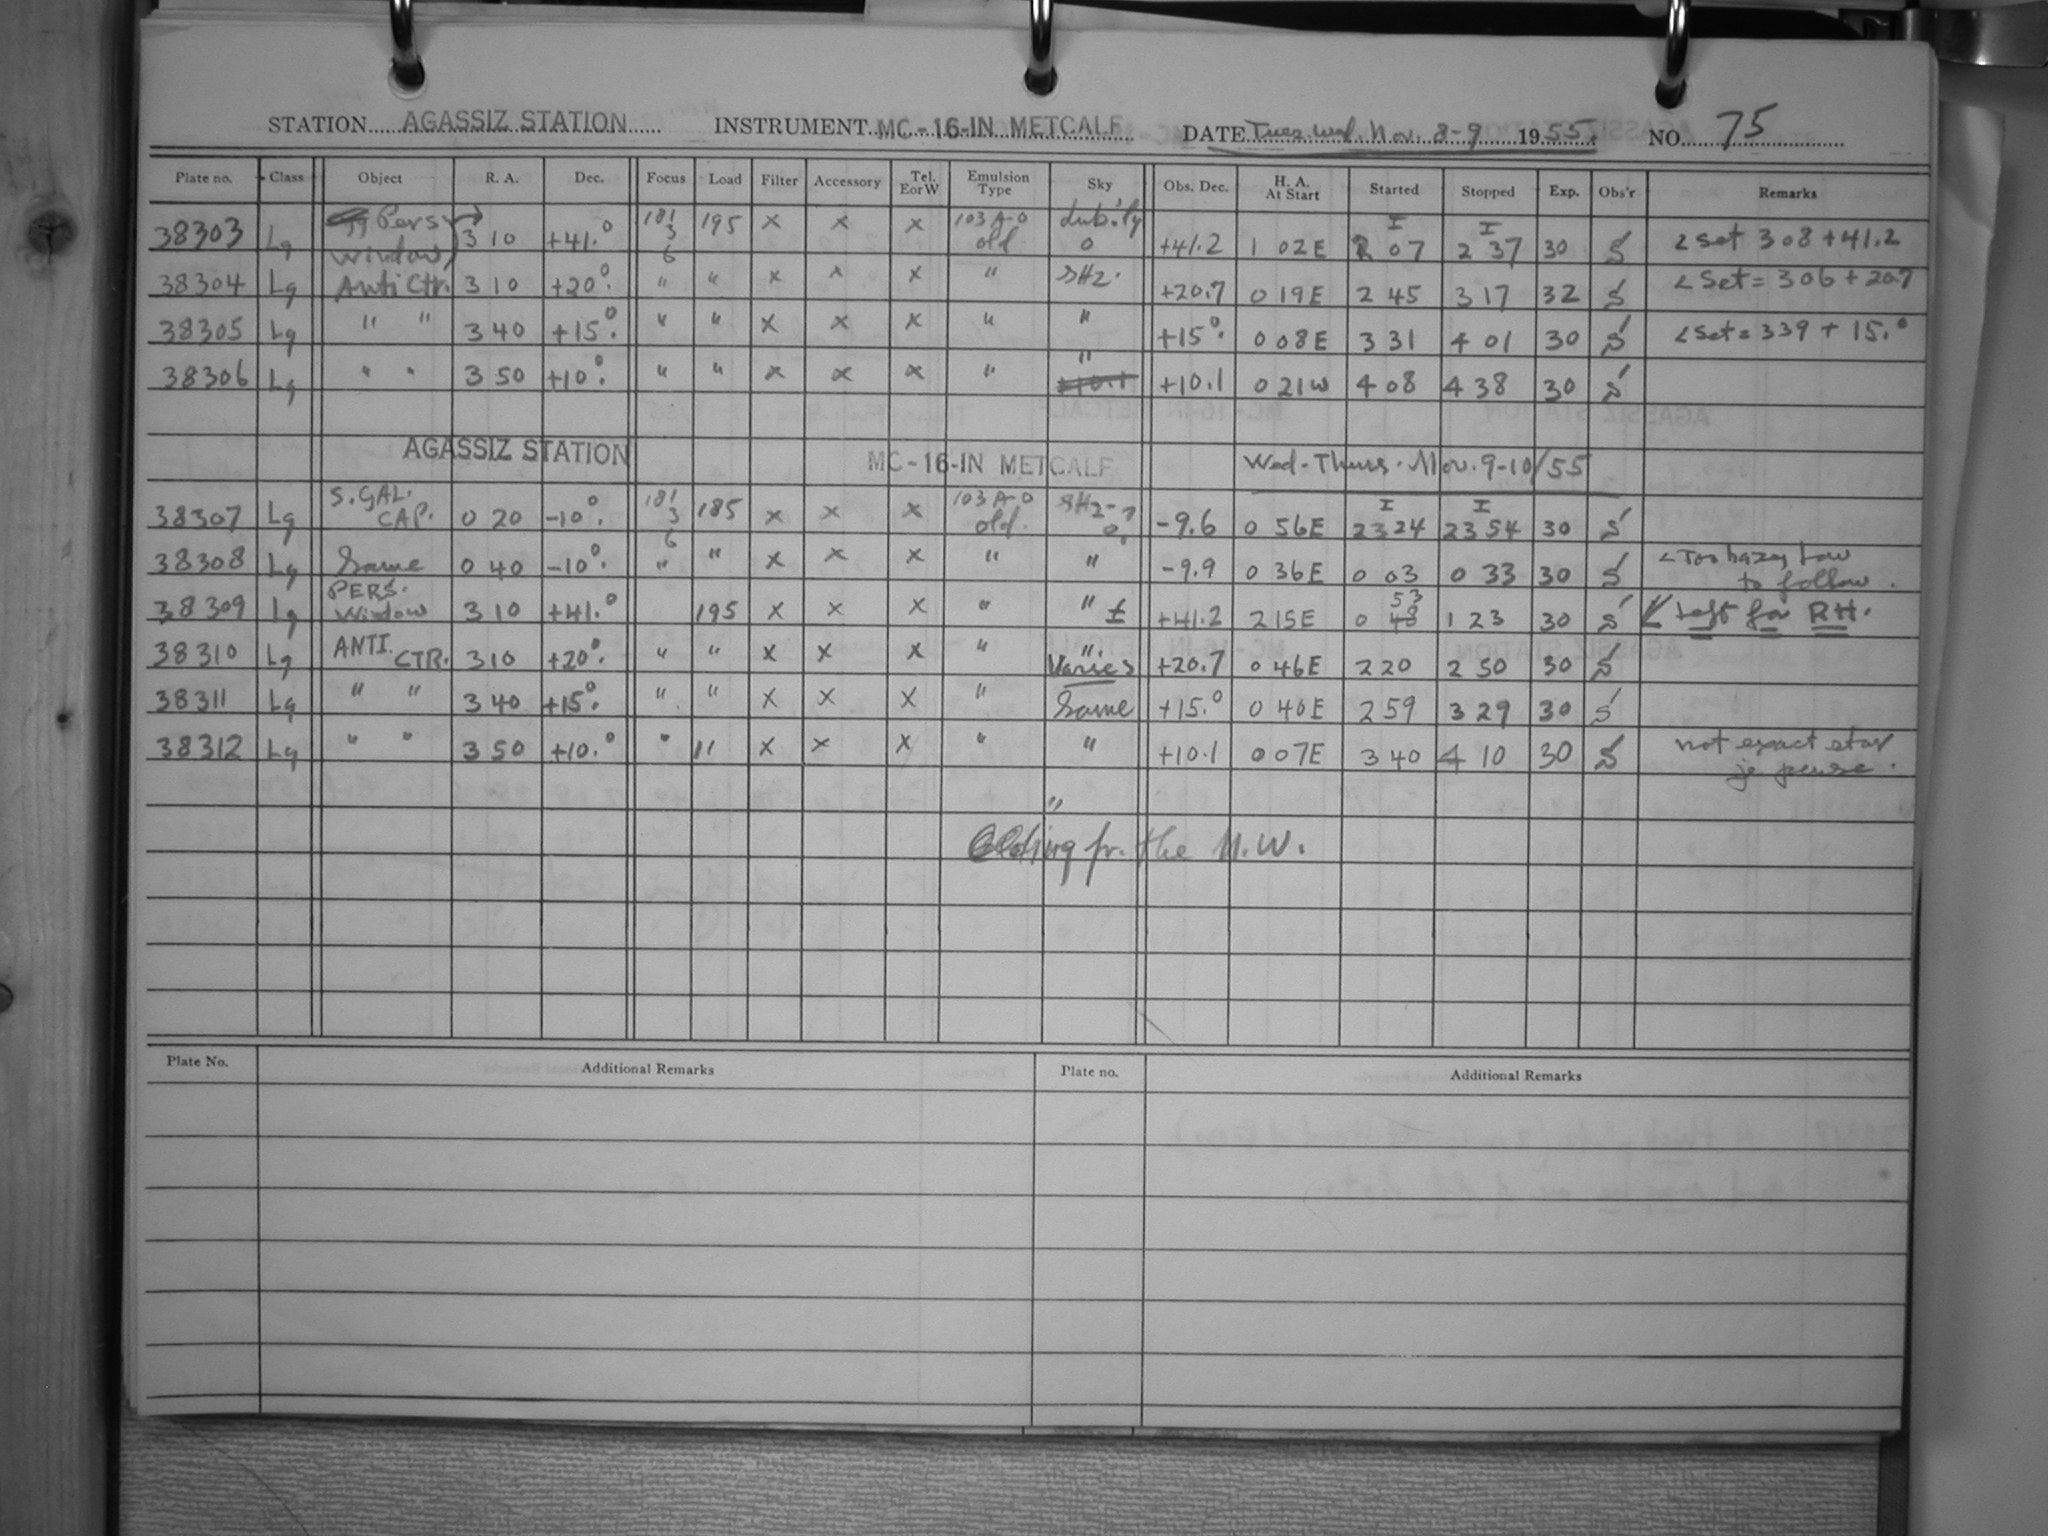 STATION AGASSIZ STATION INSTRUMENT MC-16-IN METCALF DATE Tues. Wed. Nov. 8-9 1955. NO. 75
Plate no. Class Object R. A. Dec. Focus Load Filter Accessory Tel. E or W Emulsion Type Sky Obs. Dec. H. A. At Start Started Stopped Exp. Obs'r Remarks
38303 Lg Pers. Window 3 10 +41.° 181 3 6 195 x x x 103 A-O old 0 +41.2 1 02E 2 07 I 2 37 I 30 S < set 308 +41.2
38304 Lg Anti Ctr. 3 10 +20.° " " x x x " SH2. +20.7 0 19E 2 45 3 17 32 S < Set = 306 + 20.7
38305 Lg " " 3 40 +15.° " " x x x " " +15.° 0 08E 3 31 4 01 30 S < Set = 339 + 15.°
38306 Lg " " 3 50 +10.° " " x x x " " +10.1 0 21W 4 08 4 38 30 S
AGASSIZ STATION MC-16-IN METCALF Wed-Thurs. Nov. 9-10/55
38307 Lg S. GAL. CAP. 0 20 -10.° 181 3 6 185 x x x 103 A-O old. SH2-? -9.6 0 56E 23 24 I 23 54 I 30 S
38308 Lg Same 0 40 -10.° " " x x x " " -9.9 0 36E 0 03 0 33 30 S < Too hazy low to follow.
38309 Lg PERS. Window 3 10 +41.° 195 x x x " " ± +41.2 2 15E 0 53 1 23 30 S < Left for RH.
38310 Lg ANTI. CTR. 3 10 +20.° " " x x x " " Varies +20.7 0 46E 2 20 2 50 30 S
38311 Lg " " 3 40 +15.° " " x x x " Same +15.° 0 40E 2 59 3 29 30 S
38312 Lg " " 3 50 +10.° " 11 x x x " " +10.1 0 07E 3 40 4 10 30 S not exact star je pense.
"
fr. the N.W.
Plate No. Additional Remarks Plate no. Additional Remarks